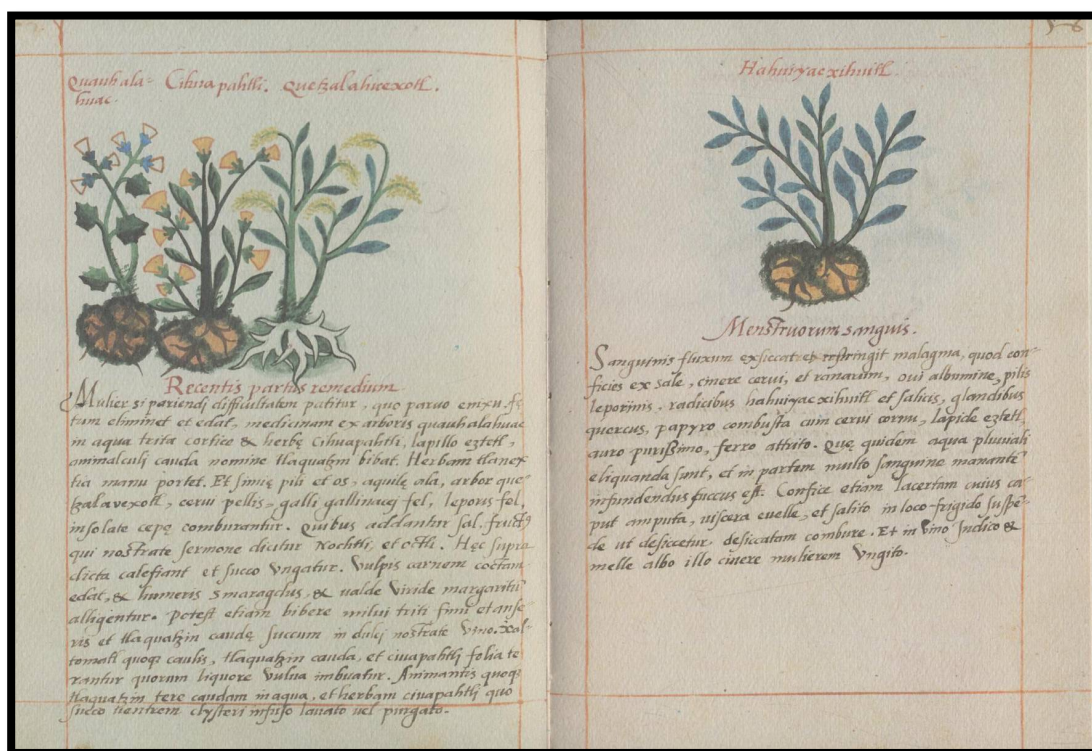 Quauhala= Cihuapahtli. Quetzalahuexotl.
huac.
Recentis partus remedium
Mulier si pariendi difficultatem patitur, quo paruo enixu fę
tum eliminet et edat, medicinam ex arboris quauhalahuac
in aqua trita cortice & herbę cihuapahtli, lapillo eztetl,
animalculi cauda nomine tlaquatzin bibat. Herbam tlanex
tia manu portet. Et simię pili et os, aquilę ala, arbor que
tzalavexotl, cerui pellis, galli gallinacej fel, leporis fel,
insolate cepę comburantur. Quibus addantur sal, fructꝰ
qui nostrate sermone dicitur Nochtli, et octli. Hęc supra
dicta calefiant et succo Vngatur. Vulpis carnem coctam
edat, & humeris smaragdus, & ualde Viride margaritū
alligentur. Potest etiam bibere milui triti fimi et anse
ris et tlaquatzin caudę succum in dulcj nostrate Vino. Xal-
tomatl quoqȝ caulis, tlaquatzin cauda, et ciuapahtlj folia te
rantur quorum liquore Vulua imbuatur. Animantis quoqȝ
tlaquatzin tere caudam in aqua, et herbam ciuapahtlj quo
succo uentrem clysteri infuso lauato uel purgato.
56
Hahuiyacxihuitl.
Menstruorum sanguis.
Sanguinis fluxum exsiccat et restringit malagma, quod con-
ficies ex sale, cinere cerui, et ranarum, oui albumine, pilis
leporinis. radicibus hahuiyacxihuitl et salicis, glandibus
quercus, papyro combusta cum cerui cornu, lapide eztetl,
auro purißimo, ferro attrito. Quę quidem aqua pluuiali
eliquanda sunt, et in partem multo sanguine manantē
infundendus succus est. Confice etiam lacertam cuius ca-
put amputa, uiscera euelle, et salito in loco frigido suspē-
de ut desiccetur, desiccatam combure. Et in Vino Jndico &
melle albo illo cinere mulierem Vngito.